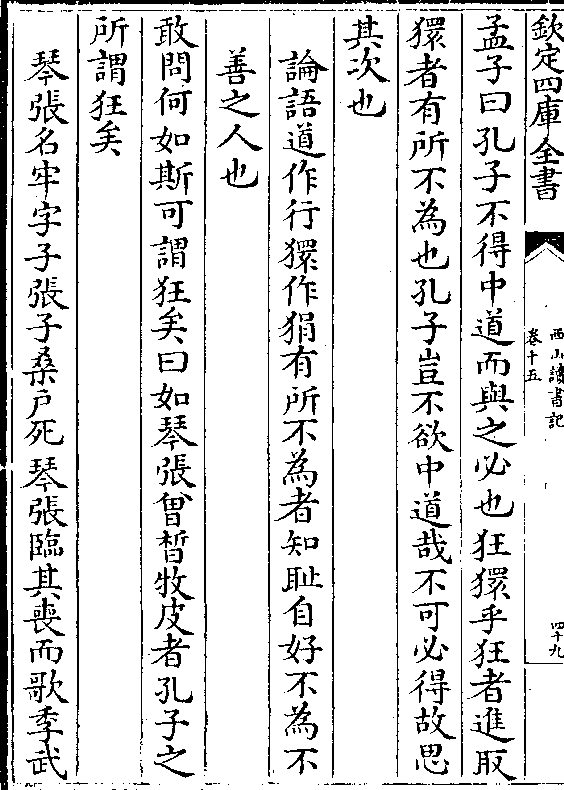 欽定四庫全書
西山讀書記
卷十五
四十九
孟子曰孔子不得中道而與之必也狂獧乎狂者進取
獧者有所不為也孔子豈不欲中道哉不可必得故思
其次也
論語道作行獧作狷有所不為者知耻自好不為不
善之人也
敢問何如斯可謂狂矣曰如琴張曾晳牧皮者孔子之
所謂狂矣
琴張名牢字子張子桑戸死琴張臨其喪而歌季武